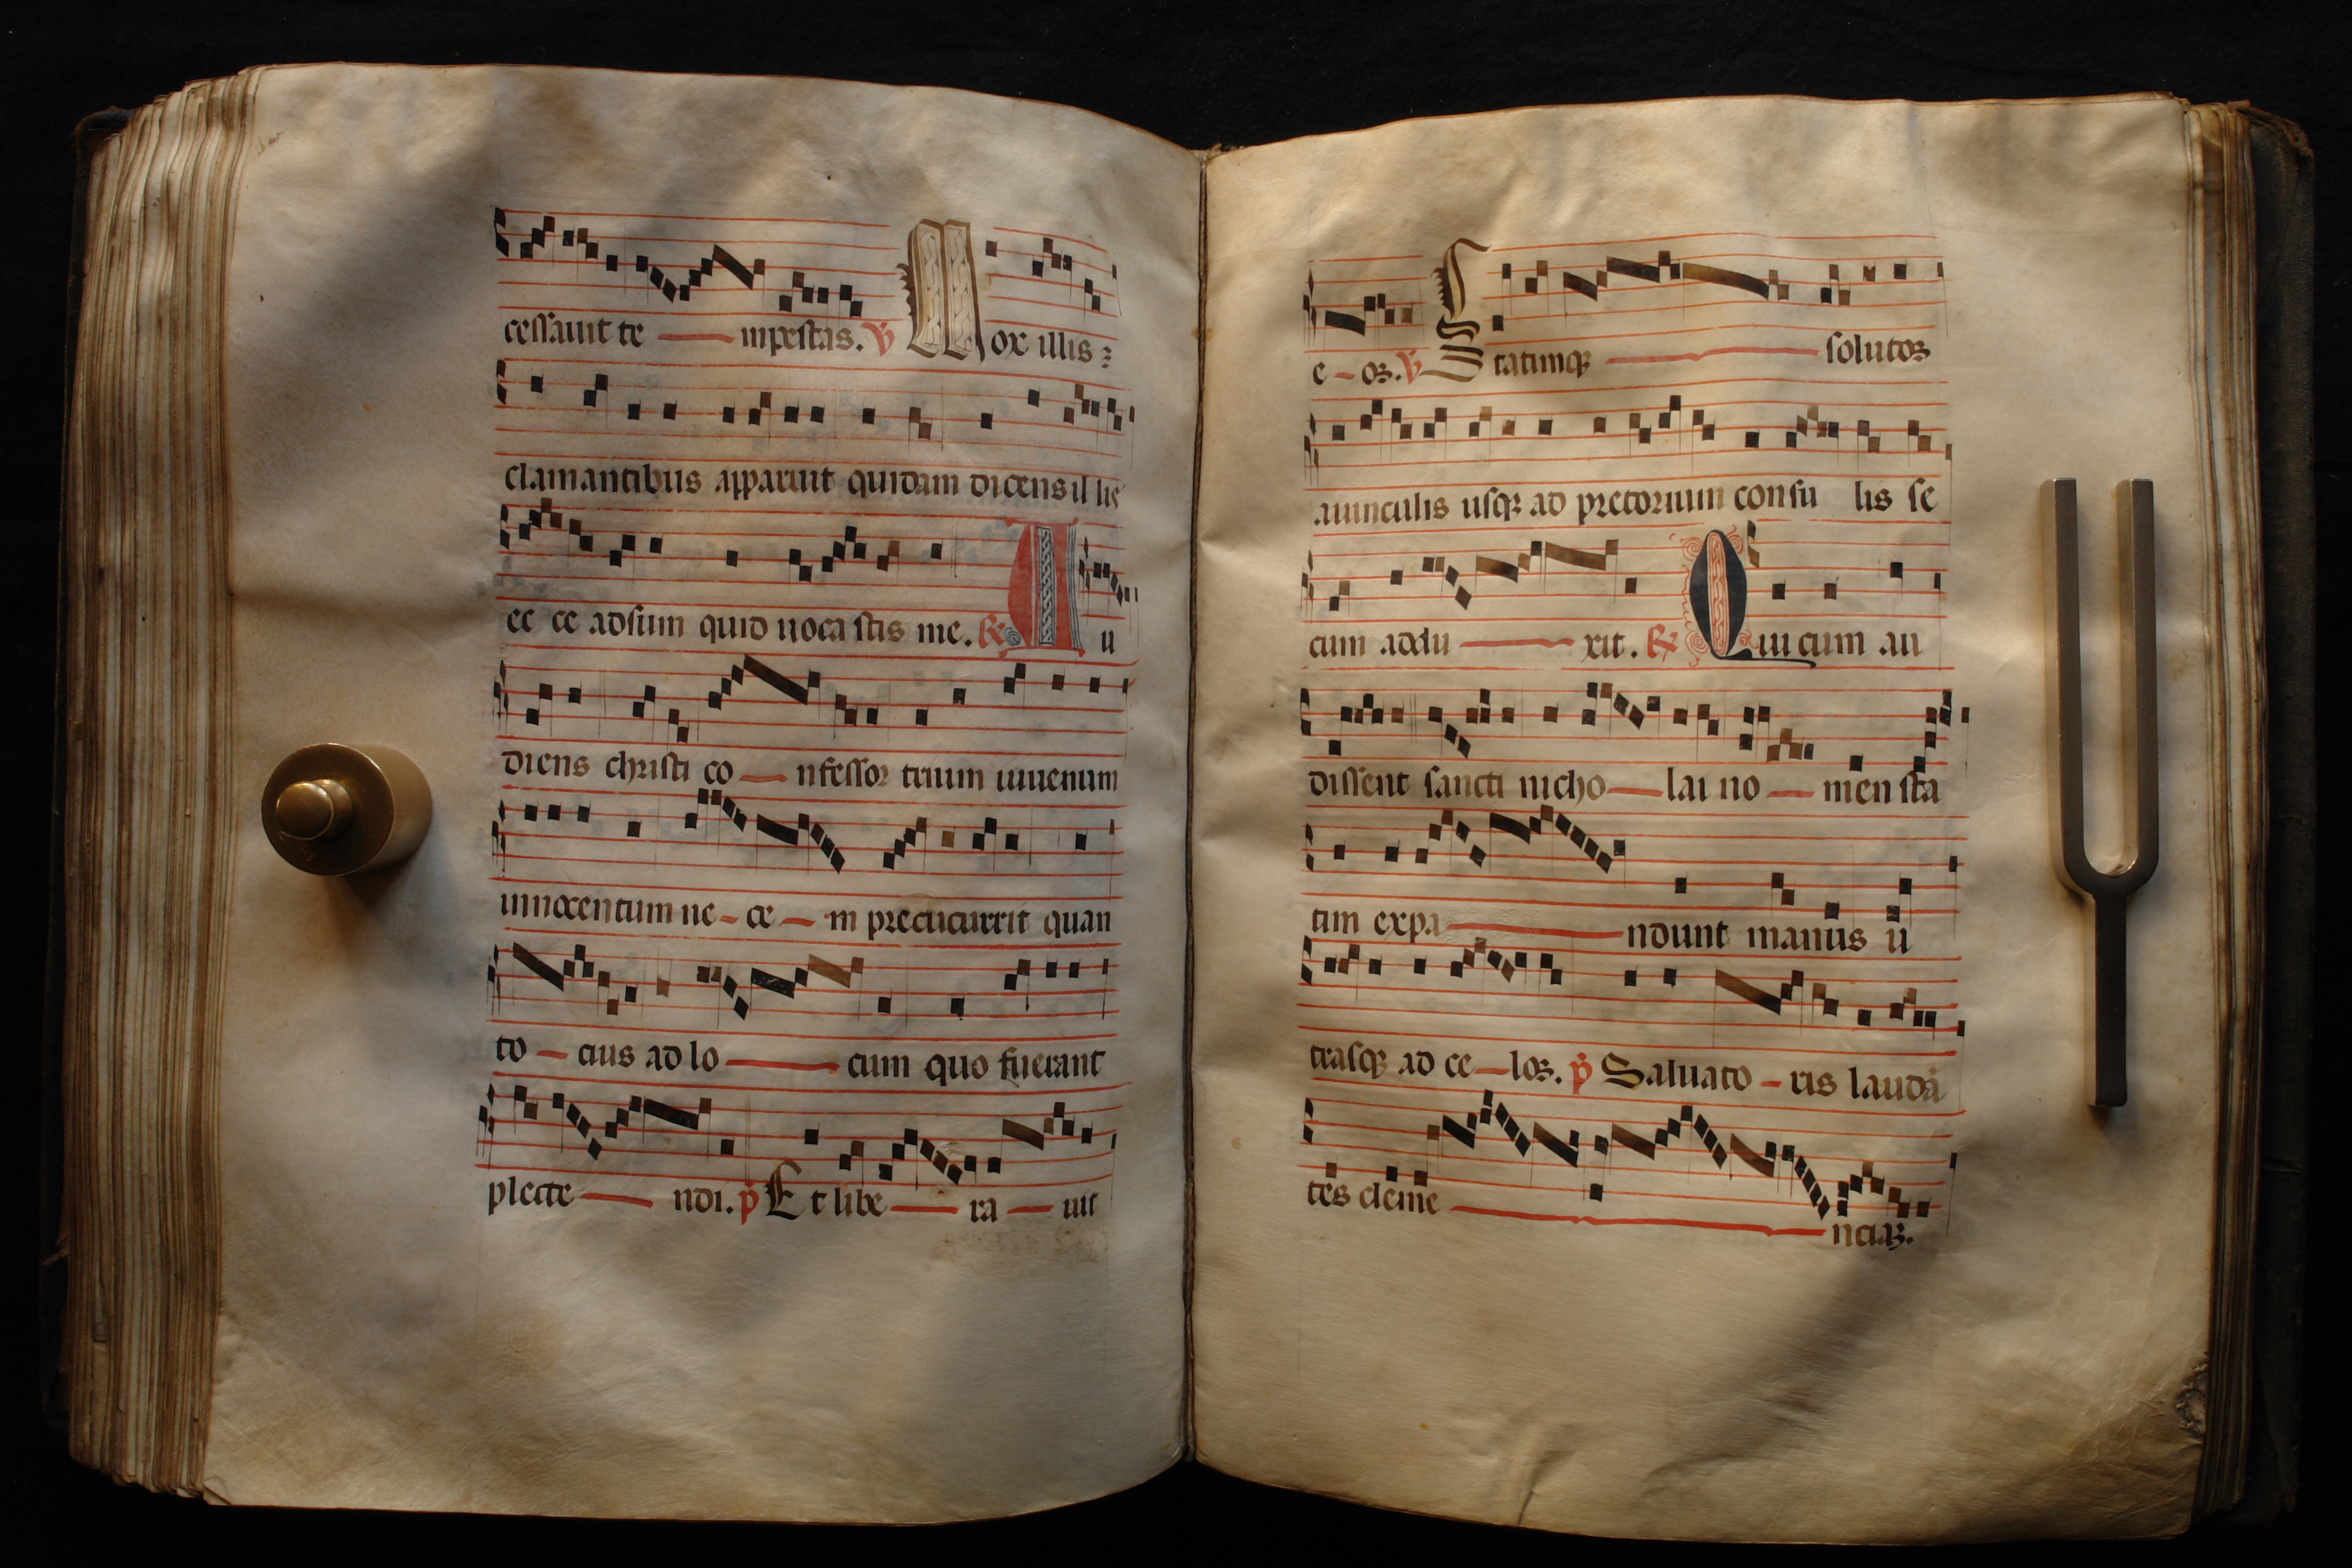 cessauit te — mpestas. ℣ Mox illis
clamantibus apparuit quidam dicens illis
ec ce adsum quid uoca stis me. ℟ Au
diens christi co — nfessor trium iuuenum
innocentum ne - ce — m precucurrit quan
to — cius ad lo — cum quo fuerant
plecte — ndi. p Et libe — ra — uit
e - oꝝ. ℣ Statimqꝫ — solutoꝝ
a uinculis usqꝫ ad pretorium consu lis se
cum addu — xit. ℟ Qui cum au
dissent sancti nicho — lai no — men sta
tim expa — ndunt manus u
trasqꝫ ad ce — loꝝ. p Saluato - ris laudā
tes cleme — nciaꝝ.